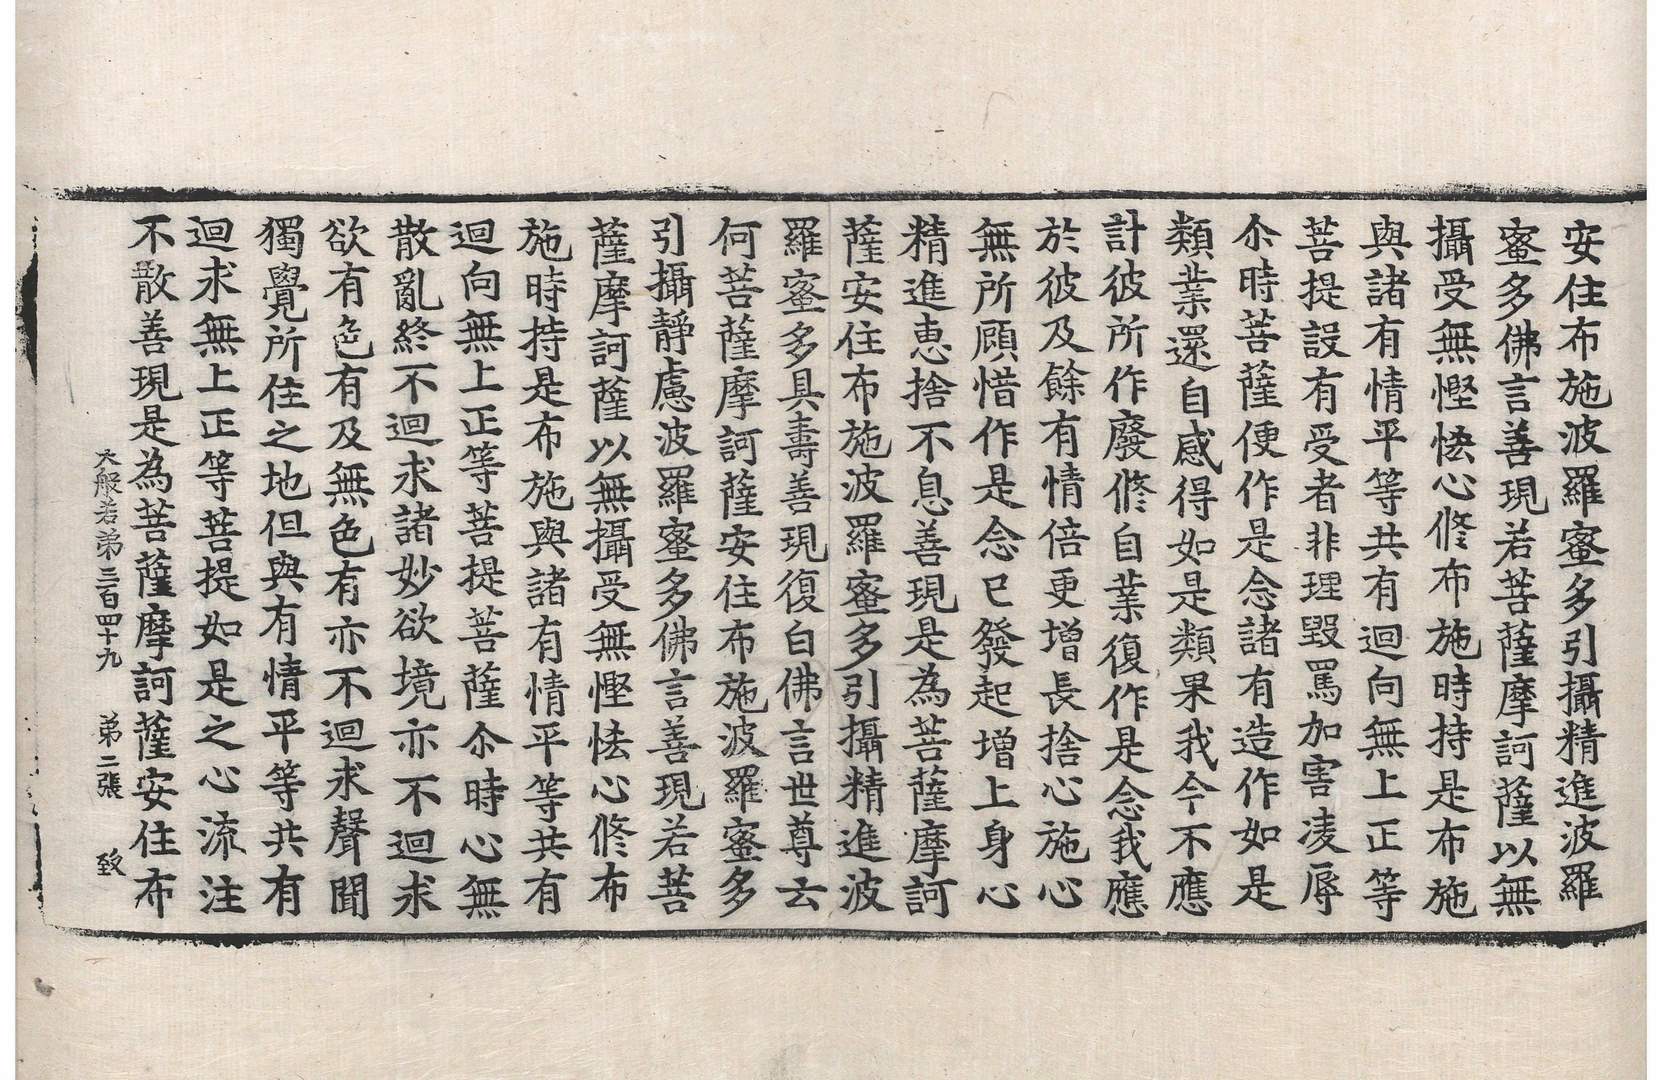 安住布施波羅蜜多引攝精進波羅
蜜多佛言善現若菩薩摩訶薩以無
攝受無慳悋心修布施時持是布施
與諸有情平等共有迴向無上正等
菩提設有受者非理毀罵加害凌辱
尒時菩薩便作是念諸有造作如是
類業還自感得如是類果我今不應
計彼所作廢修自業復作是念我應
於彼及餘有情倍更增長捨心施心
無所顧惜作是念已發起增上身心
精進惠捨不息善現是為菩薩摩訶
薩安住布施波羅蜜多引攝精進波
羅蜜多具壽善現復白佛言世尊云
何菩薩摩訶薩安住布施波羅蜜多
引攝靜慮波羅蜜多佛言善現若菩
薩摩訶薩以無攝受無慳悋心修布
施時持是布施與諸有情平等共有
迴向無上正等菩提菩薩尒時心無
散亂終不迴求諸妙欲境亦不迴求
欲有色有及無色有亦不迴求聲聞
獨覺所住之地但與有情平等共有
迴求無上正等菩提如是之心流注
不散善現是為菩薩摩訶薩安住布
大般若弟三百四十九 弟二張 致